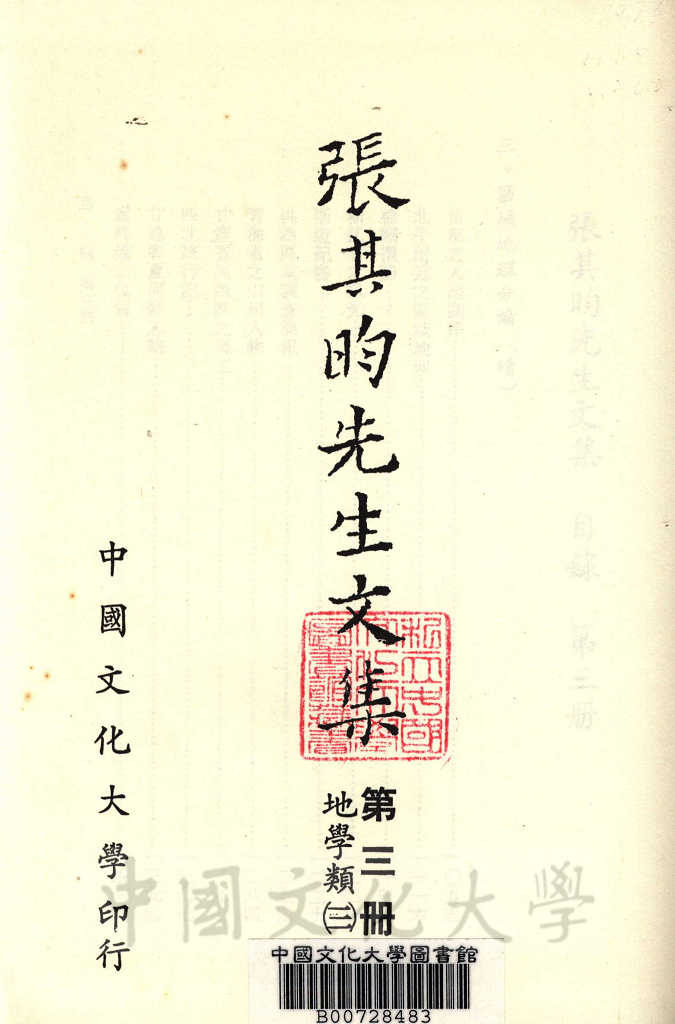 張其昀先生文集
第三冊
地學類㈢
中國文化大學印行
中國文化大學
中國文化大學圖書館
B00728483